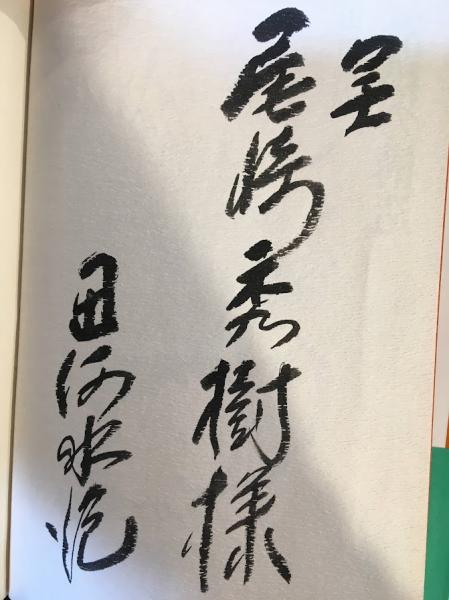 呈
尾崎秀樹様
田河水泡